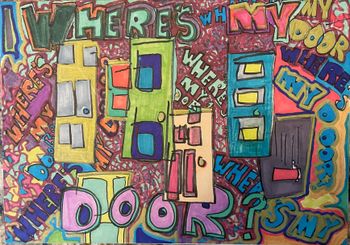 WHERE'S MY
WH
MY
DOOR
WHERE'S
MY
DOOR
WHERE'S
MY
WHERE
MY
DOOR
MY
WHERE'S
DOOR?
WHERE
S MY